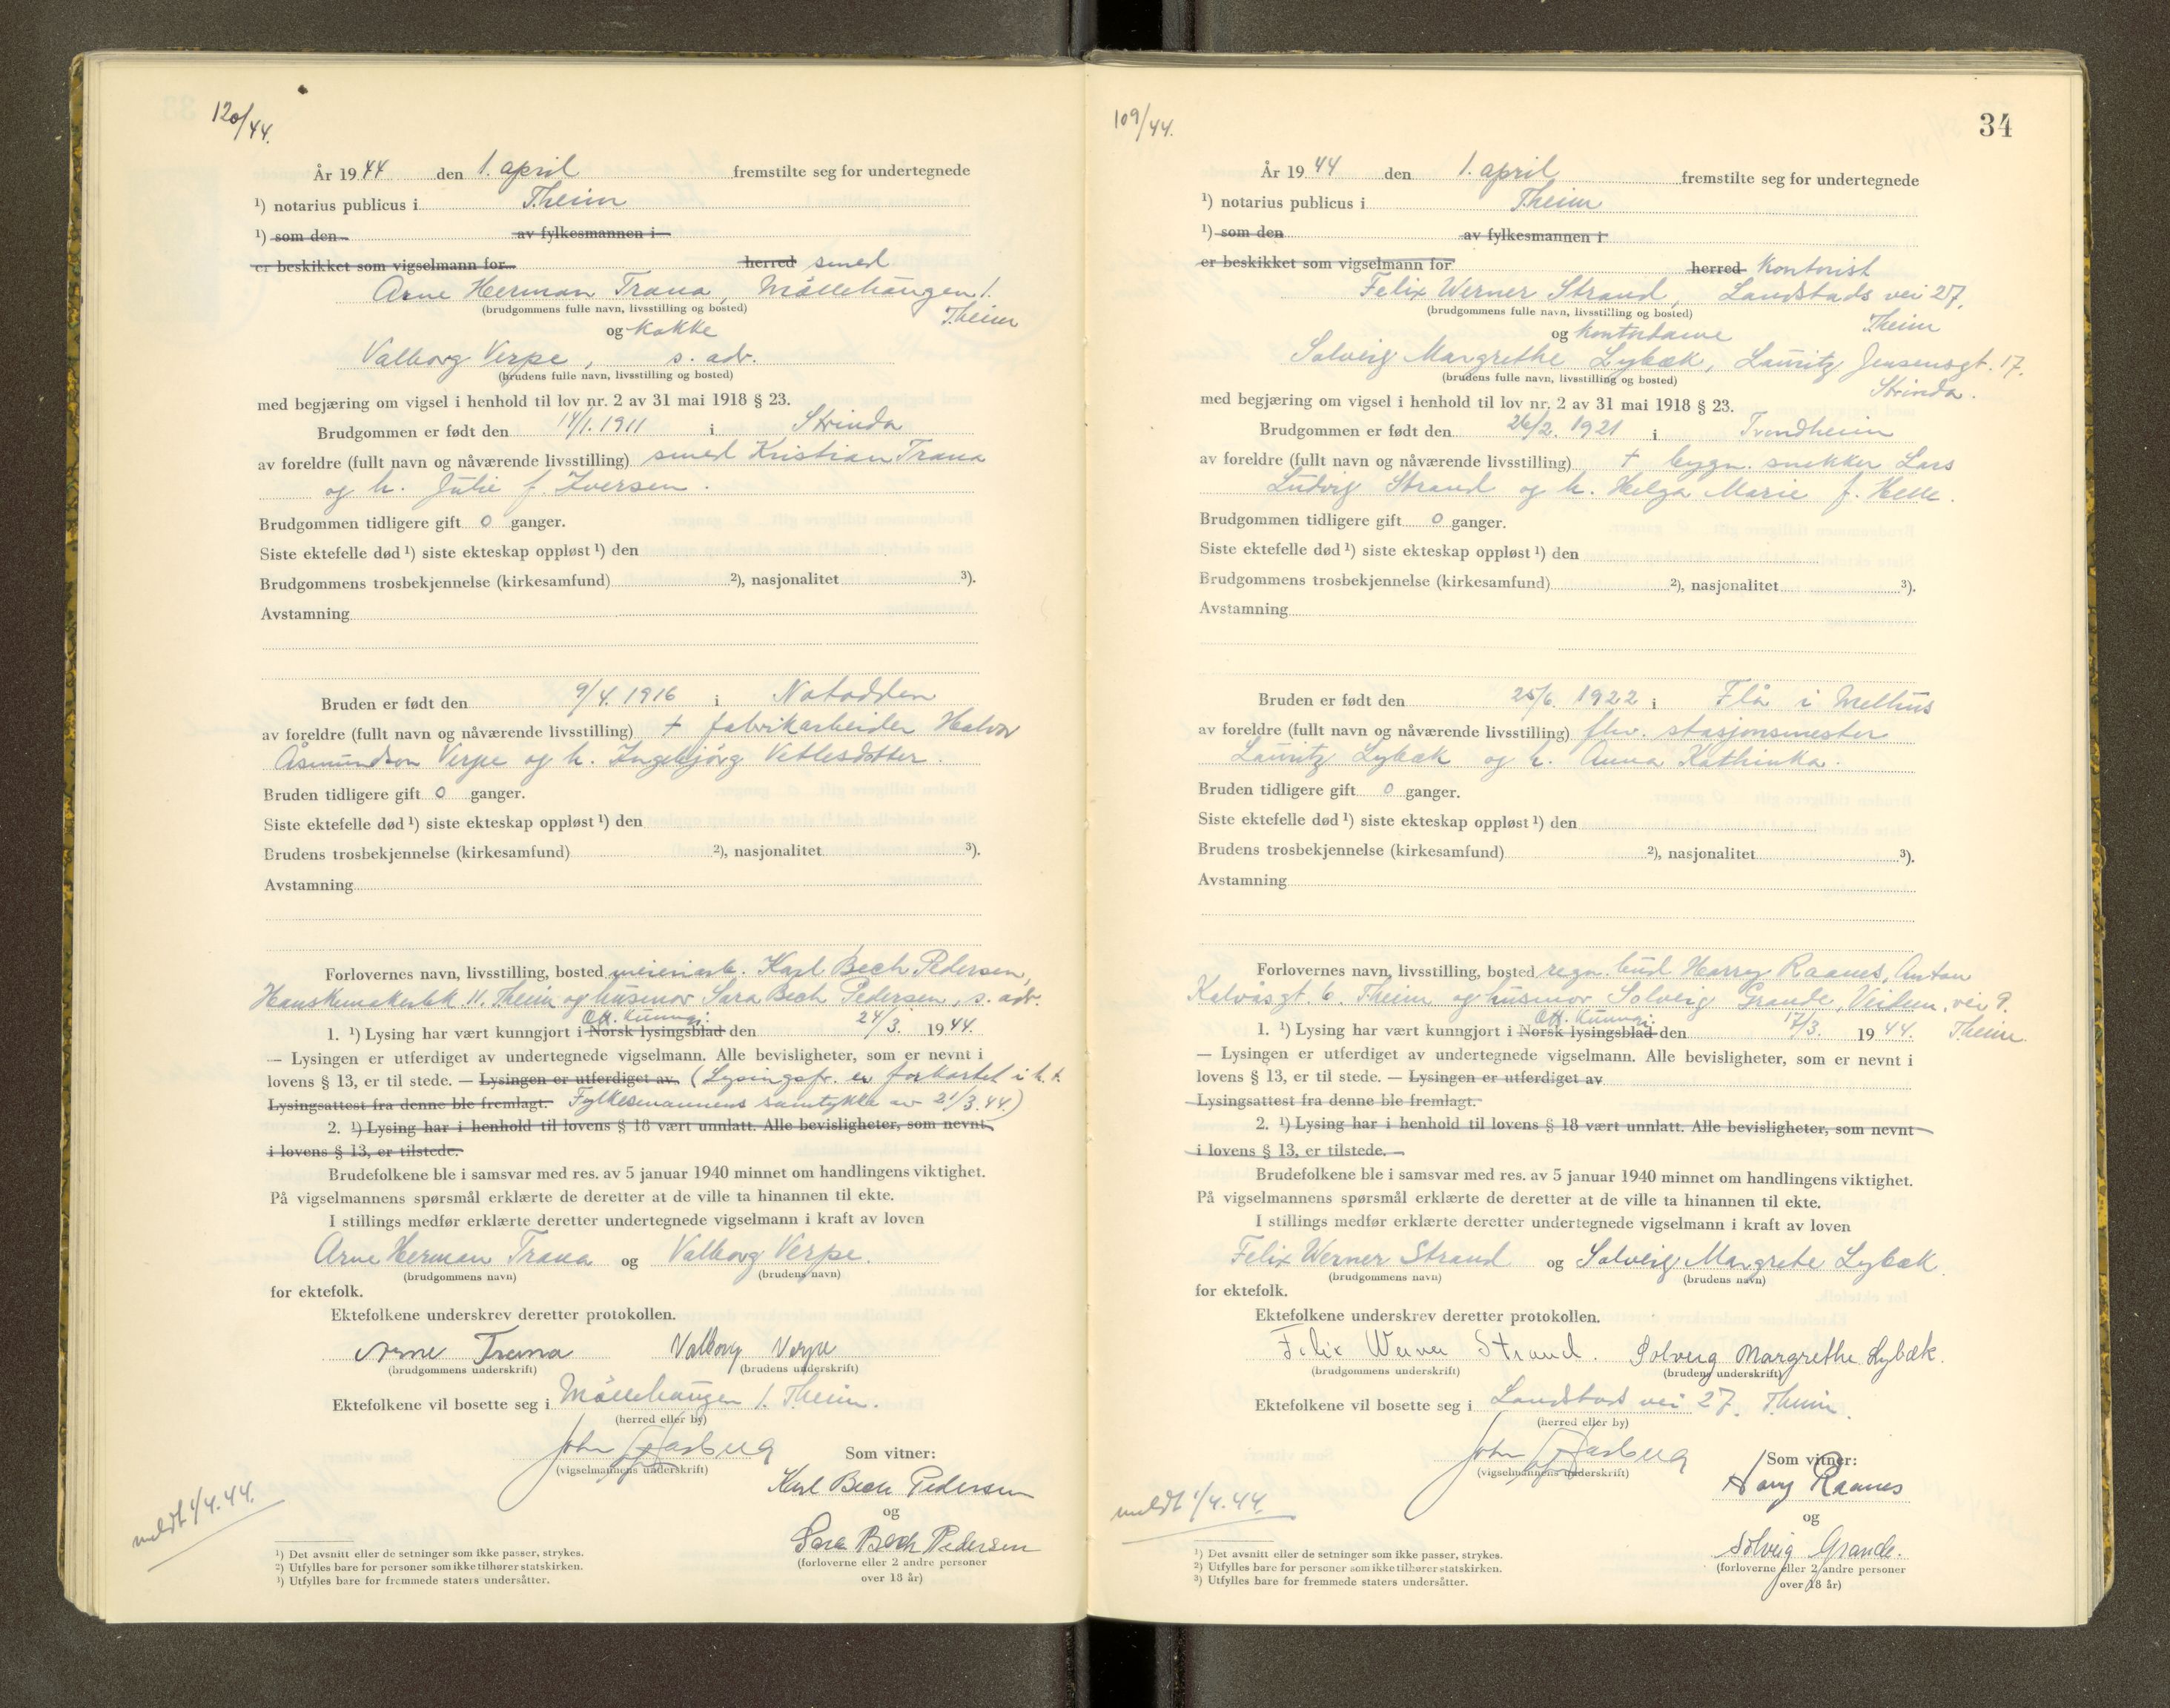 120/44.
År 1944 den 1. april fremstilte seg for undertegnede
¹) notarius publicus i Theim
¹) som den av fylkesmannen i
er beskikket som vigselmann for herred smed
Arne Herman Trana, Möllehaugen 1.
(brudgommens fulle navn, livsstilling og bosted) Theim
og kokke
Valborg Verpe, s. adr.
(brudens fulle navn, livsstilling og bosted)
med begjæring om vigsel i henhold til lov nr. 2 av 31 mai 1918 § 23.
Brudgommen er født den 14/1. 1911 i Strinda
av foreldre (fullt navn og nåværende livsstilling) smed Kristian Trana
og h. Julie f. Iversen.
Brudgommen tidligere gift 0 ganger.
Siste ektefelle død ¹) siste ekteskap oppløst ¹) den
Brudgommens trosbekjennelse (kirkesamfund) ²), nasjonalitet ³).
Avstamning
Bruden er født den 9/4. 1916 i Notodden
av foreldre (fullt navn og nåværende livsstilling) + fabrikarbeider Halvor
Åsmundson Verpe og h. Ingebjörg Vetlesdotter.
Bruden tidligere gift 0 ganger.
Siste ektefelle død ¹) siste ekteskap oppløst ¹) den
Brudens trosbekjennelse (kirkesamfund) ²), nasjonalitet ³).
Avstamning
Forlovernes navn, livsstilling, bosted meieriarb. Karl Bech Pedersen,
Hanskemakerbk. 11. Theim og husmor Sara Bech Pedersen, s. adr.
Off. Kunngj.
1. ¹) Lysing har vært kunngjort i Norsk lysingsblad den 24/3. 1944.
— Lysingen er utferdiget av undertegnede vigselmann. Alle bevisligheter, som er nevnt i
lovens § 13, er til stede. — Lysingen er utferdiget av (Lysingsfr. er forkortet i h. t.
Lysingsattest fra denne ble fremlagt. Fylkesmannens samtykke av 21/3.44.)
2. ¹) Lysing har i henhold til lovens § 18 vært unnlatt. Alle bevisligheter, som nevnt
i lovens § 13, er tilstede.
Brudefolkene ble i samsvar med res. av 5 januar 1940 minnet om handlingens viktighet.
På vigselmannens spørsmål erklærte de deretter at de ville ta hinannen til ekte.
I stillings medfør erklærte deretter undertegnede vigselmann i kraft av loven
Arne Herman Trana og Valborg Verpe.
(brudgommens navn) (brudens navn)
for ektefolk.
Ektefolkene underskrev deretter protokollen.
Arne Trana Valborg Verpe
(brudgommens underskrift) (brudens underskrift)
Ektefolkene vil bosette seg i Möllehaugen 1. Theim.
(herred eller by)
John Aasberg Som vitner:
(vigselmannens underskrift)
Karl Bech Pedersen
og
Sara Bech Pedersen
(forloverne eller 2 andre personer
over 18 år)
meldt 1/4.44.
¹) Det avsnitt eller de setninger som ikke passer, strykes.
²) Utfylles bare for personer som ikke tilhører statskirken.
³) Utfylles bare for fremmede staters undersåtter.
109/44.
34
År 1944 den 1. april fremstilte seg for undertegnede
¹) notarius publicus i Theim
¹) som den av fylkesmannen i
er beskikket som vigselmann for herred Kontorist
Felix Werner Strand, Landstads vei 27.
(brudgommens fulle navn, livsstilling og bosted) Theim
og kontordame
Solveig Margrethe Lybæk, Lauritz Jensensgt. 17.
(brudens fulle navn, livsstilling og bosted) Strinda.
med begjæring om vigsel i henhold til lov nr. 2 av 31 mai 1918 § 23.
Brudgommen er født den 26/2. 1921 i Trondheim
av foreldre (fullt navn og nåværende livsstilling) + bygn. snekker Lars
Ludvig Strand og h. Helga Marie f. Helle.
Brudgommen tidligere gift 0 ganger.
Siste ektefelle død ¹) siste ekteskap oppløst ¹) den
Brudgommens trosbekjennelse (kirkesamfund) ²), nasjonalitet ³).
Avstamning
Bruden er født den 25/6. 1922 i Flå i Melhus
av foreldre (fullt navn og nåværende livsstilling) fhv. stasjonsmester
Lauritz Lybæk og h. Anna Kathinka.
Bruden tidligere gift 0 ganger.
Siste ektefelle død ¹) siste ekteskap oppløst ¹) den
Brudens trosbekjennelse (kirkesamfund) ²), nasjonalitet ³).
Avstamning
Forlovernes navn, livsstilling, bosted regn. bud Harry Raanes, Anton
Kalvåsgt. 6. Theim og husmor Solveig Grande, vei 9.
Off. Kunngj. Theim
1. ¹) Lysing har vært kunngjort i Norsk lysingsblad den 17/3. 1944.
— Lysingen er utferdiget av undertegnede vigselmann. Alle bevisligheter, som er nevnt i
lovens § 13, er til stede. — Lysingen er utferdiget av
Lysingsattest fra denne ble fremlagt.
2. ¹) Lysing har i henhold til lovens § 18 vært unnlatt. Alle bevisligheter, som nevnt
i lovens § 13, er tilstede.
Brudefolkene ble i samsvar med res. av 5 januar 1940 minnet om handlingens viktighet.
På vigselmannens spørsmål erklærte de deretter at de ville ta hinannen til ekte.
I stillings medfør erklærte deretter undertegnede vigselmann i kraft av loven
Felix Werner Strand og Solveig Margrete Lybæk.
(brudgommens navn) (brudens navn)
for ektefolk.
Ektefolkene underskrev deretter protokollen.
Felix Werner Strand. Solveig Margrethe Lybæk.
(brudgommens underskrift) (brudens underskrift)
Ektefolkene vil bosette seg i Landstads vei 27. Theim.
(herred eller by)
John Aasberg Som vitner:
(vigselmannens underskrift)
Harry Raanes
og
Solveig Grande.
(forloverne eller 2 andre personer
over 18 år)
meldt 1/4.44.
¹) Det avsnitt eller de setninger som ikke passer, strykes.
²) Utfylles bare for personer som ikke tilhører statskirken.
³) Utfylles bare for fremmede staters undersåtter.